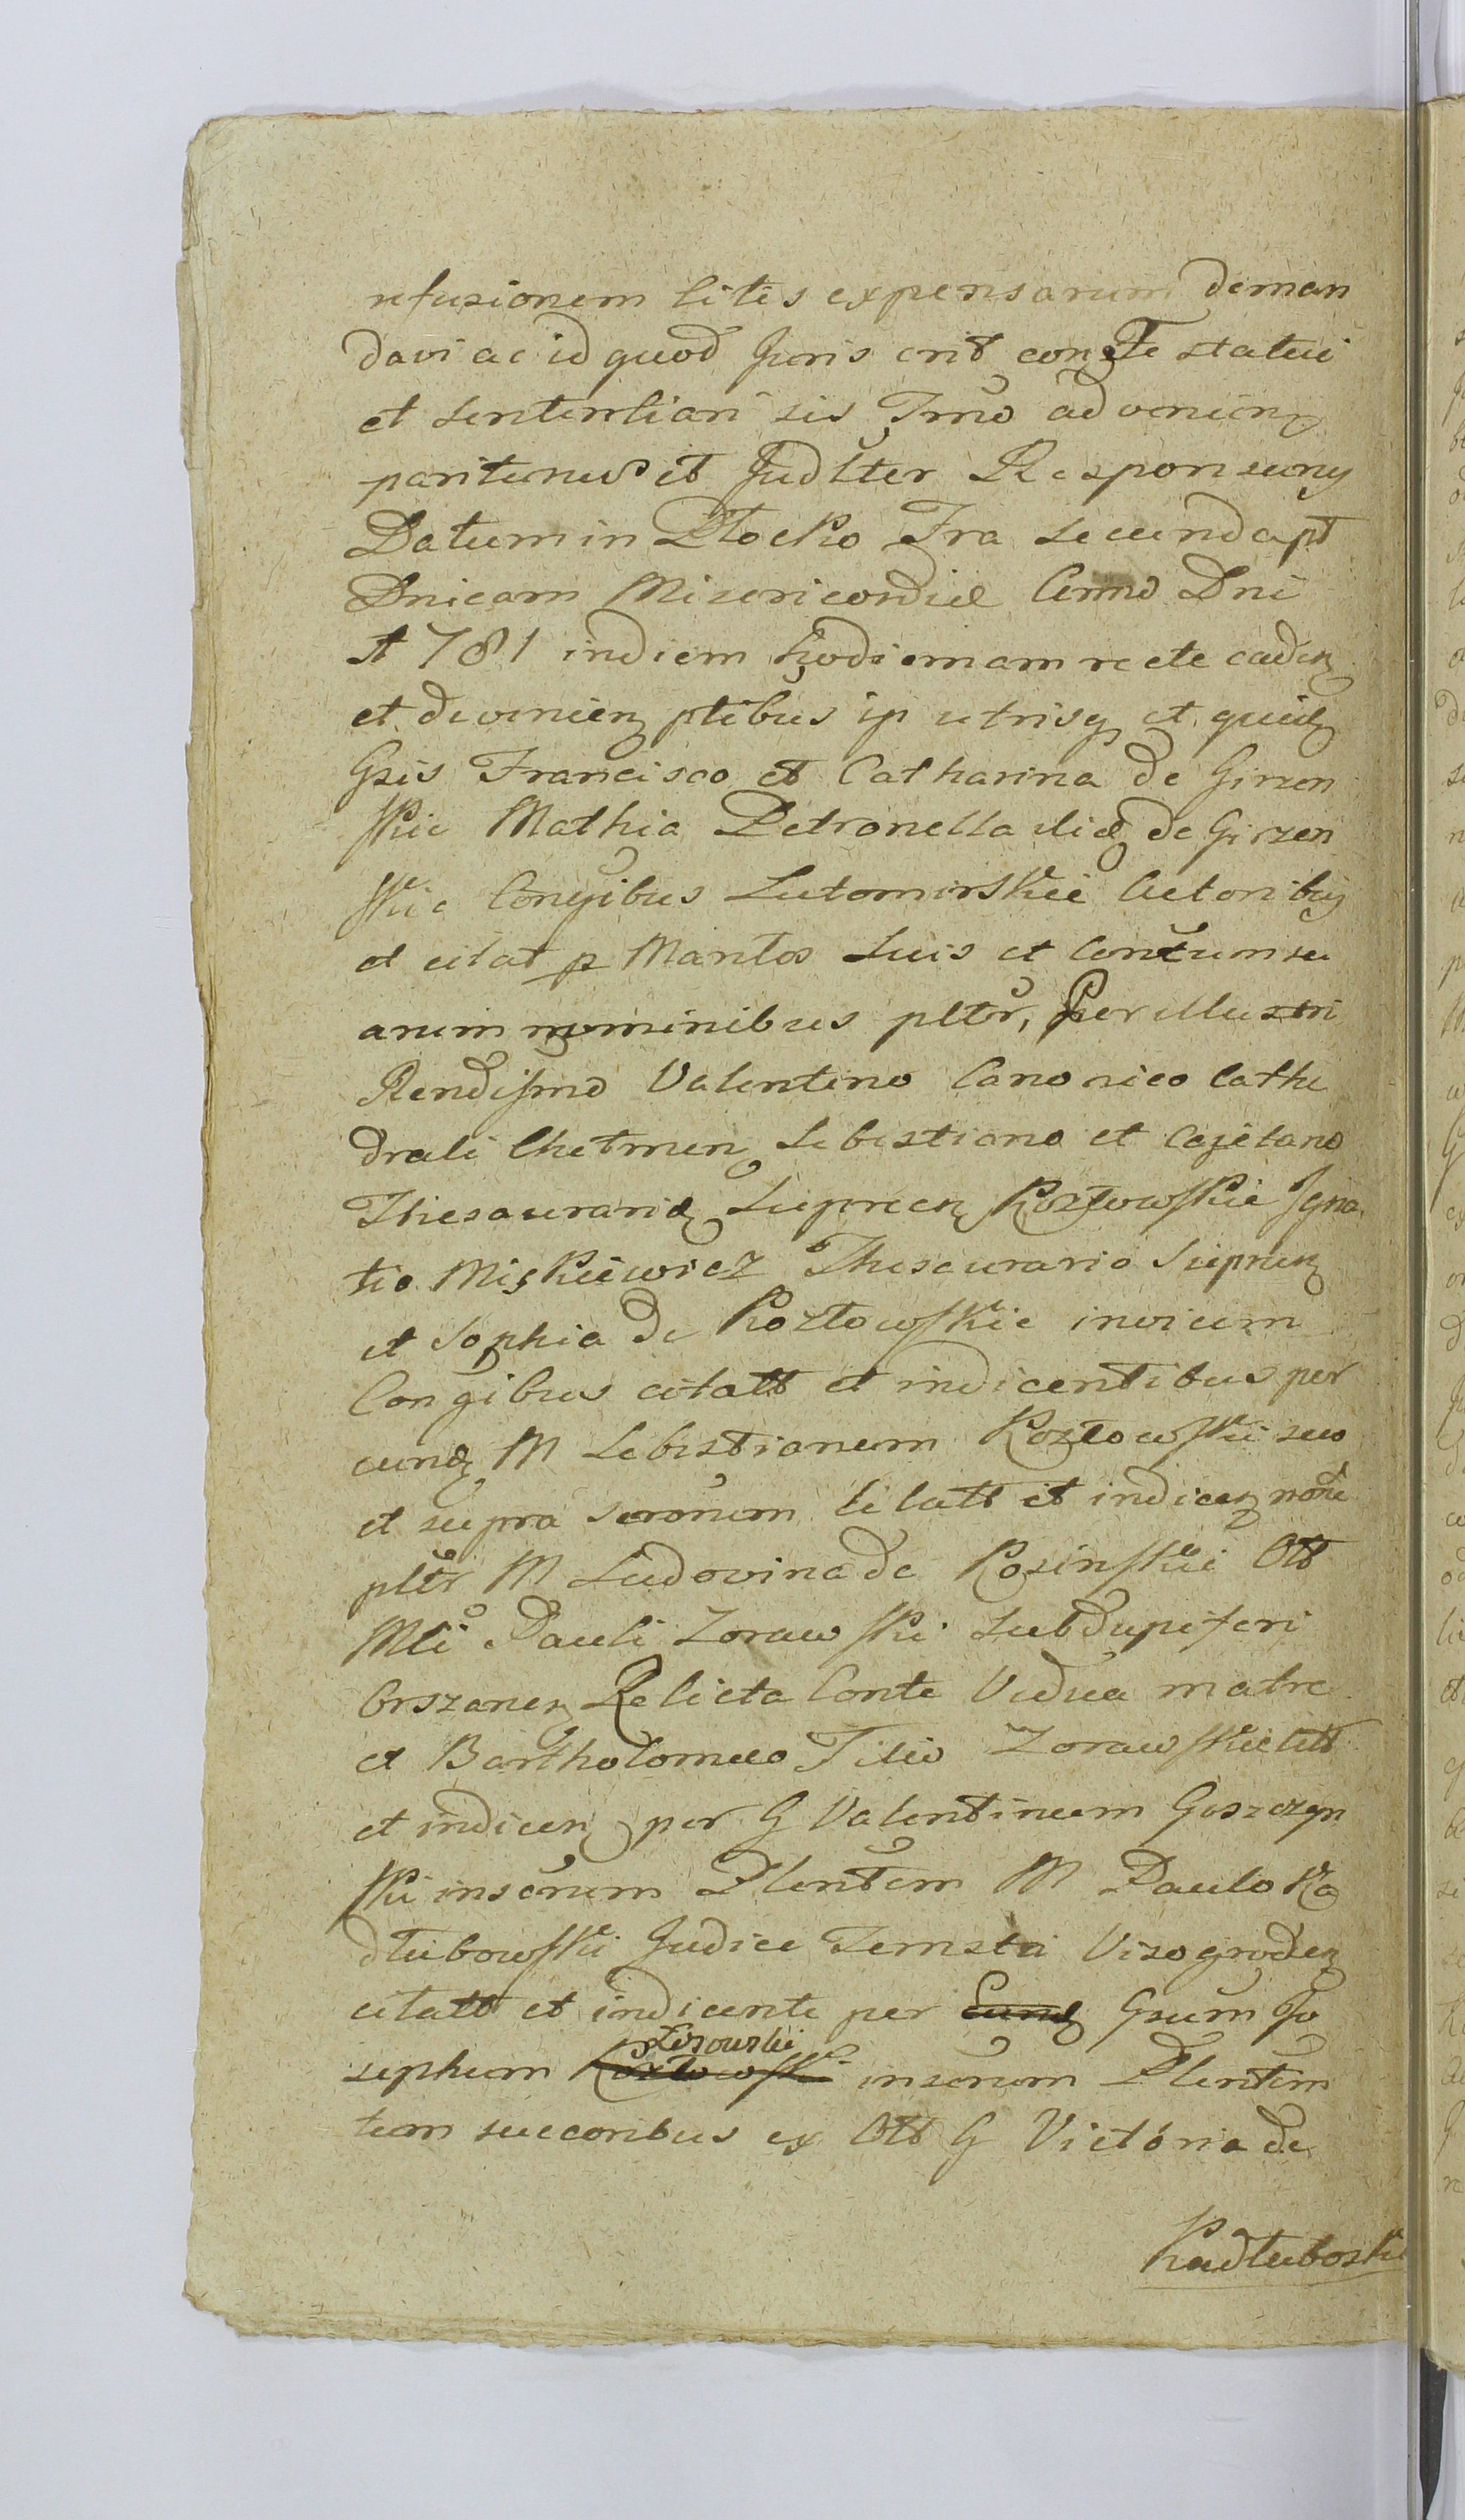 refusionem litis expensarum deman
dari ac id quod Juris erit con Te statui
et sententiari sis Trno advenien
pariturus et Judlter Responsurus
Datum in Płocko Fra secunda pt
Dnicam Misericordiæ Anno Dni
1781 in diem hodiernam recte caden
et devenien ptibus ip utrisq et quid
Gsis Francisco et Catharina de Girzen
skie Mathia Petronella aliæ de Girzen
skie Congibus Lutomirskie Actoribus
et citat p Mantos suis et Contum su
arum nominibus pltr, Perillustri
Rendissmo Valentino Canonico Cathe
drali Chełmen Sebestiano et Cajetano
Thesaurarid Supreen Kozłowskie Igna
tio Miszkiewicz Thesaurario Supren
et Sophia de Kozłowskie invicem
Congibus citatt et indicentibus per
eund M Sebestianum Kozłowski suo
et supra scronum citatt et indicen noie
pltr M Ludovina de Kosinskie Ott
Mci Pauli Zorawski Subdapiferi
Orszanen Relicta Conte Vidua matre
et Bartholomeo Filio Zorawskie citt
et indicen per G Valentinum Goszczyn
ski inscrum Plentem M Paulo Ka
dłubowski Judice Terrestri Visogroden
citatt et indicente per Eund Gsum Jo
sephum Kozłowski Lisowski inscrum Plentem
tum succoribus ex Ott G Victoria de
Kadłuboskie